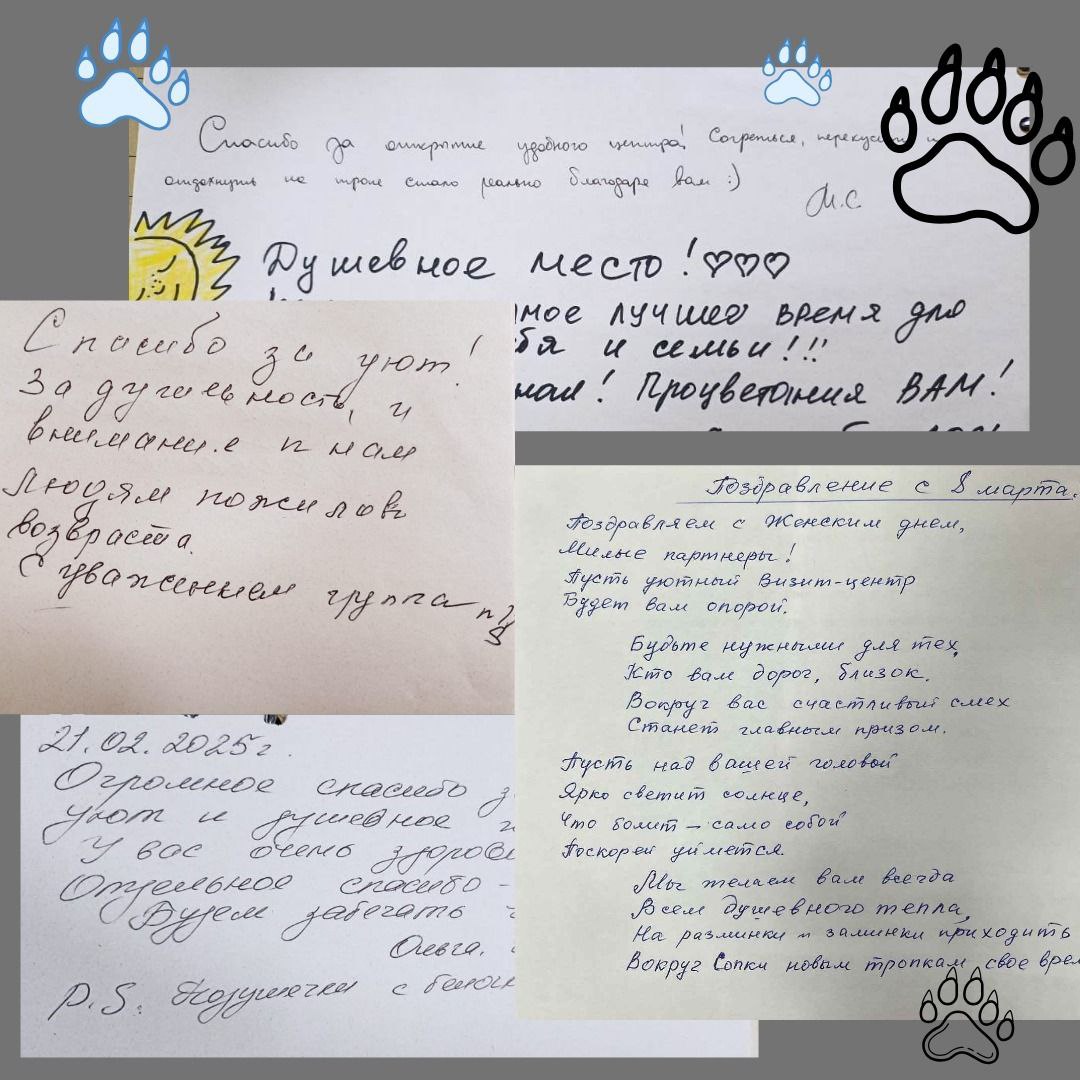 Спасибо за открытие удобного центра! Согреться, перекусить и
отдохнуть на тропе стало реально благодаре вам :)
М.С
Душевное место! ♡♡♡
лучшее время для
и семьи!!!
Процветания ВАМ!
Спасибо за уют!
За душевность, и
внимание к нам
людям пожилов
возвраста.
С уважением группа
Поздравление с 8 марта.
Поздравляем с Женским днем,
Милые партнеры!
Пусть уютный Визит-центр
Будет вам опорой.
Будьте нужными для тех,
Кто вам дорог, близок.
Вокруг вас счастливый смех
Станет главным призом.
Пусть над вашей головой
Ярко светит солнце,
Что болит – само собой
Поскорей уймется.
Мы желаем вам всегда
Всем душевного тепла,
На разминки и заминки приходить
Вокруг Сопки новым тропкам свое
21.02.2025г.
Огромное спасибо
уют и душевное
У вас очень
Отдельное спасибо -
Будем забегать
Ольга.
P.S. с